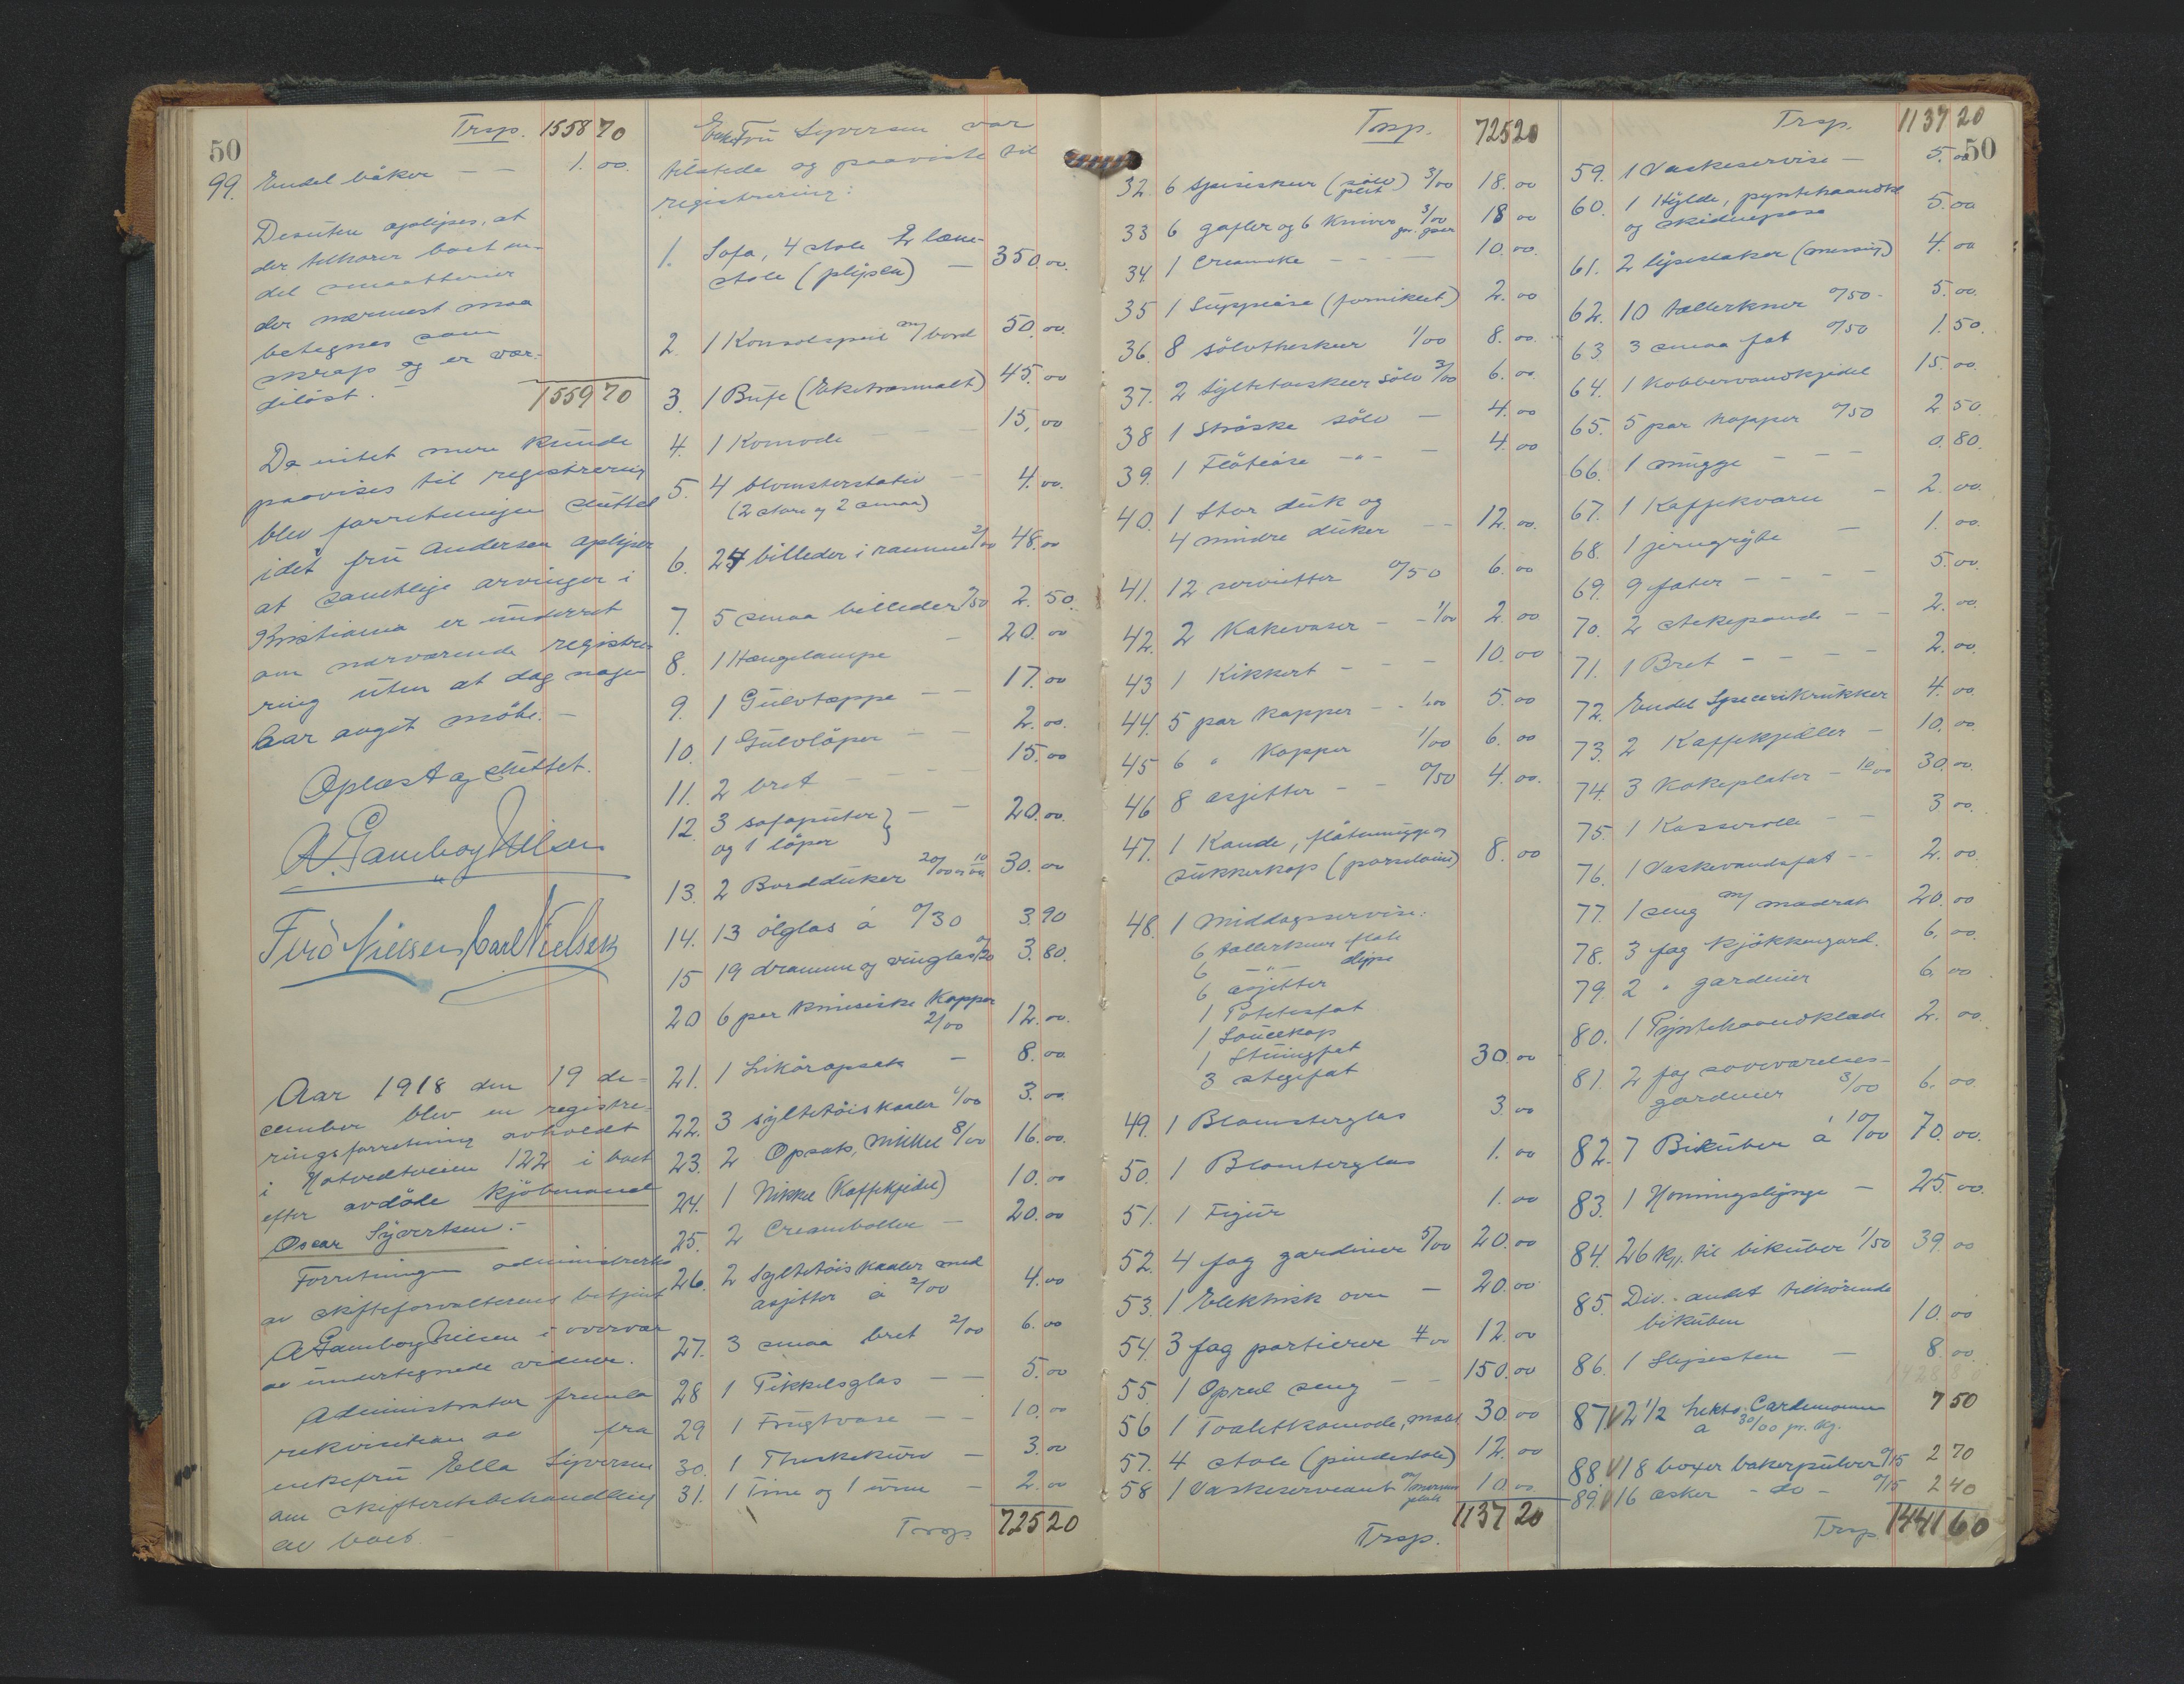 50
Trsp. 1558 70
99. Endel bøker - - 1. 00.
Desuten oplyses, at
der tilhører boet en
del smaatterier
der nærmest maa
betegnes som
skrap og er vær-
diløst. -
1559 70
Da intet mere kunde
paavises til registrering
blev forretningen sluttet
idet fru Andersen oplyser
at samtlige arvinger i
Kristiania er underret
om nærværende registre
ring uten at dog nogen
har avgit møte. -
Oplæst og sluttet.
A. Gamborg Nilsen
Carl Nielsen
Aar 1918 den 19 de-
cember blev en registre-
ringsforretning avholdt
i Hotvedtveien 122 i boet
efter avdøde kjøbmand
Oscar Syvertsen. -
Forretningen administrertes
av skifteforvalterens betjent
A Gamborg Nielsen i overvær
av undertegnede vidner.
Administrator fremla
rekvisition av fra
enkefru Ella Syversen
om skifteretsbehandling
av boet -
Enkefru Syversen var
tilstede og paaviste til
registrering:
1. Sofa, 4 stole 2 læne-
stole (plysch) - 350. 00.
2. 1 Konsolspeil m/ bord 50. 00.
3. 1 Bufe (Eketræsmalt) 45. 00
4. 1 Komode - - - 15. 00
5. 4 blomsterstativ - -
(2 store og 2 smaa) 4. 00.
6. 24 billeder i ramme 2/00 48. 00
7. 5 smaa billeder 0/50 2. 50.
8. 1 Hængelampe - 20. 00
9. 1 Gulvtæppe - - 17. 00
10. 1 Gulvløper - - 2. 00.
11. 2 bret - - - - 15. 00
12. 3 sofaputer } - -
og 1 løper 20. 00.
13. 2 Bordduker 20/00 og 10/00 30. 00
14. 13 ølglas á 0/30 3. 90
15 19 dramme og vinglas 0/20 3. 80.
20 6 par kinesiske Kopper
2/00 12. 00.
21. 1 Likøropsats - 8. 00
22. 3 syltetøiskaaler 1/00 3. 00.
23. 2 Opsats, Nikkel 8/00 16. 00.
24. 1 Nikkel (Kaffekjedel) 10. 00
25. 2 Creamboller - 20. 00
26. 2 Syltetøiskaaler med
asjetter á 2/00 4. 00
27. 3 smaa bret 2/00 6. 00
28 1 Pikkelsglas - - 5. 00
29 1 Frugtvase - - 10. 00
30. 1 Theskekurv - 3. 00
31. 1 Tine og 1 urne - 2. 00
Trsp 725 20
Trsp. 725 20
32. 6 Spiseskeer (sølv plett) 3/00 18. 00
33 6 gafler og 6 Kniver 3/00 pr. par 18 00
34 1 Creamske - - - - 10. 00.
35 1 Suppeøse (forniklet) 2. 00
36. 8 sølvtheskeer 1/00 8. 00.
37. 2 Syltetøiskeer sølv 3/00 6. 00.
38 1 Strøske sølv - 4. 00
39. 1 Fløteøse -"- - 4. 00
40. 1 Stor duk og
4 mindre duker - - 12. 00.
41. 12 servietter 0/50 6. 00
42. 2 Kakevaser - - 1/00 2. 00
43 1 Kikkert - - - 10. 00
44. 5 par kopper - - 1.00 5. 00
45 6 " Kopper 1/00 6. 00
46 8 asjetter - - 0/50 4. 00.
47. 1 Kande, fløtemugge og
sukkerkop (porselains) 8. 00
48. 1 Middagsservise:
6 tallerkner flate
6 -"- dype
6 asjetter
1 Potetesfat
1 Sauçekop
1 Stuingfat
3 stegefat 30. 00
49. 1 Blomsterglas 3. 00
50. 1 Blomsterglas 1. 00
51. 1 Figur 1. 00
52. 4 fag gardiner 5/00 20. 00
53. 1 Elektrisk ovn - 20. 00
54. 3 fag portierer 4/00 12. 00
55. 1 Opred seng - - 150. 00
56 1 Toaletkomode, malt 30. 00
57. 4 stole (pindestole) 12. 00
58 1 Vaskeservant m/ marmor plate 10. 00
Trsp. 1137 20
50
Trsp. 1137 20
59. 1 Vaskeservise - 5. 00
60. 1 Hylde, pyntehaandkl
og skidnepose 5. 00
61. 2 lysestaker (messing) 4. 00
62. 10 tallerkner 0/50 - 5. 00.
63 3 smaa fat 0/50 1. 50.
64. 1 Kobbervandkjedel 15. 00.
65. 5 par kopper 0/50 2 50.
66. 1 mugge - - - 0. 80.
67. 1 Kaffekværn - 2. 00.
68. 1 jerngryte - 1. 00.
69. 9 fater - - - - 5. 00.
70. 2 stekepande - - 2. 00.
71. 1 Bret - - - - 2. 00.
72. Endel Specerikrukker 4. 00
73. 2 Kaffekjedler - 10. 00.
74. 3 Kokeplater - 10/00 30. 00.
75. 1 Kasserolle - - 3. 00.
76. 1 Vaskevandsfat - - 2. 00.
77. 1 seng m/ madrats 20. 00
78. 3 fag Kjøkkengard. 6. 00.
79. 2 " gardiner 6. 00
80. 1 Pyntehaandklæde 2. 00.
81. 2 fag soveværelses-
gardiner 3/00 6. 00
82. 7 Bikuber á 10/00 70. 00.
83. 1 Honningslynge - 25. 00.
84. 26 kg. til bikuber 1/50 39. 00
85. Div. andet tilhørende
bikuben 10. 00
86. 1 Slipesten - 8. 00
87. 2 1/2 hekto. Cardemomme 7 50
á 30/00 pr. kg.
88. 18 boxer bakerpulver 0/15 2 70
89. 16 æsker - do - 0/15 2 40
Trsp 1441 60